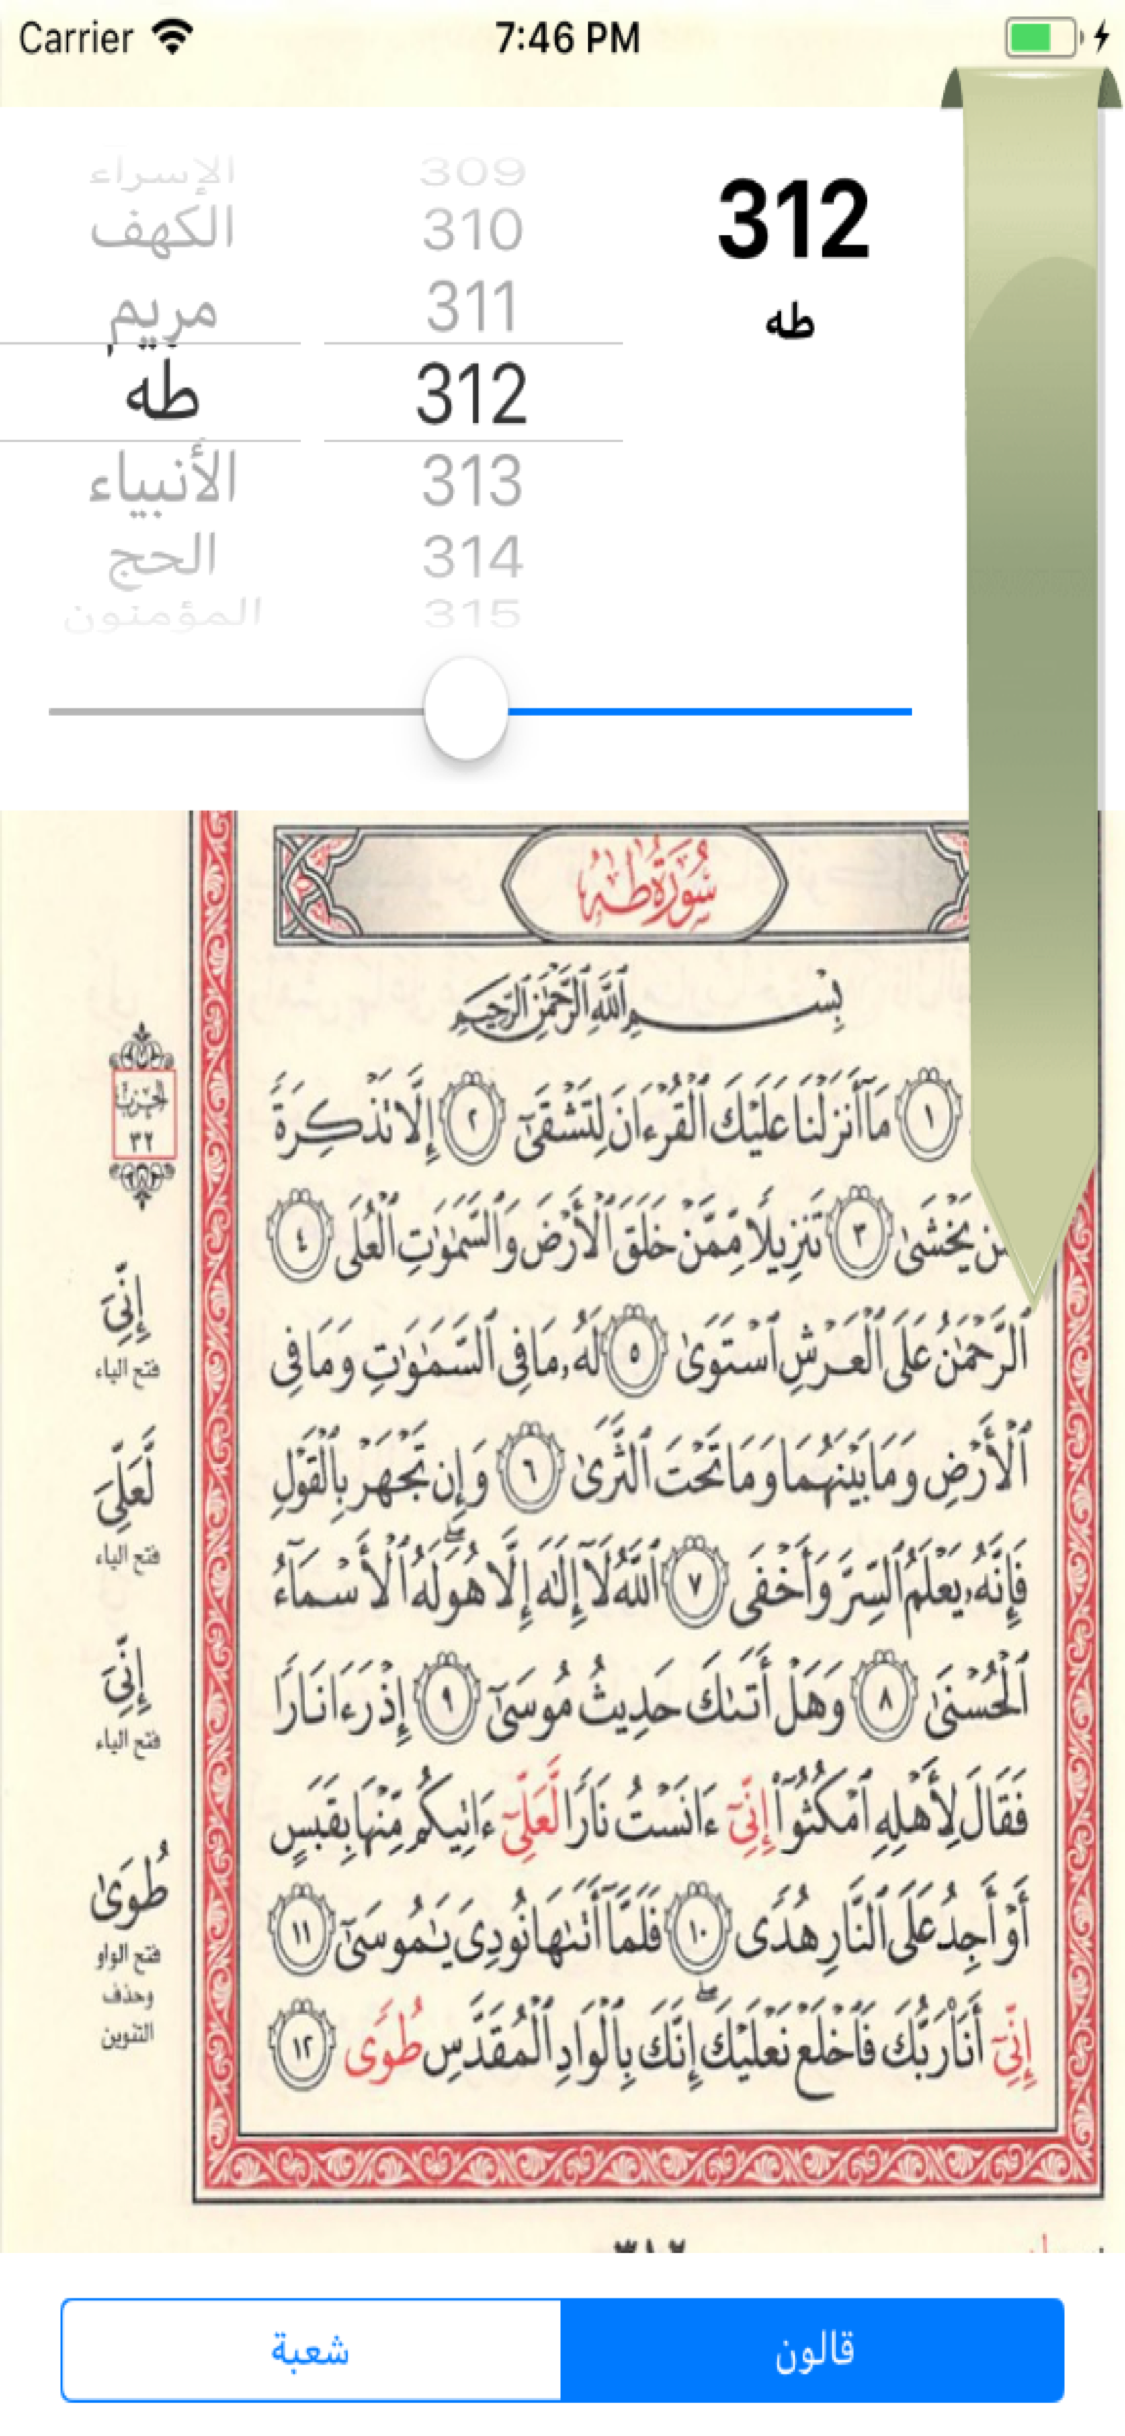 Carrier 7:46 PM
الإسراء
الكهف
مريم
طه
الأنبياء
الحج
المؤمنون
309
310
311
312
313
314
315
312
طه
سُورَةُ طه
بِسْمِ اللَّهِ الرَّحْمَٰنِ الرَّحِيمِ
١ مَا أَنزَلْنَا عَلَيْكَ الْقُرْءَانَ لِتَشْقَىٰ ٢ إِلَّا تَذْكِرَةً
يَخْشَىٰ ٣ تَنزِيلًا مِّمَّنْ خَلَقَ الْأَرْضَ وَالسَّمَٰوَٰتِ الْعُلَى ٤
الرَّحْمَٰنُ عَلَى الْعَرْشِ اسْتَوَىٰ ٥ لَهُ مَا فِي السَّمَٰوَٰتِ وَمَا فِي
الْأَرْضِ وَمَا بَيْنَهُمَا وَمَا تَحْتَ الثَّرَىٰ ٦ وَإِن تَجْهَرْ بِالْقَوْلِ
فَإِنَّهُ يَعْلَمُ السِّرَّ وَأَخْفَى ٧ اللَّهُ لَا إِلَٰهَ إِلَّا هُوَ لَهُ الْأَسْمَاءُ
الْحُسْنَىٰ ٨ وَهَلْ أَتَىٰكَ حَدِيثُ مُوسَىٰ ٩ إِذْ رَءَا نَارًا
فَقَالَ لِأَهْلِهِ امْكُثُوا إِنِّيَ ءَانَسْتُ نَارًا لَّعَلِّيَ ءَاتِيكُم مِّنْهَا بِقَبَسٍ
أَوْ أَجِدُ عَلَى النَّارِ هُدًى ١٠ فَلَمَّا أَتَىٰهَا نُودِيَ يَٰمُوسَىٰ ١١
إِنِّيَ أَنَا رَبُّكَ فَاخْلَعْ نَعْلَيْكَ إِنَّكَ بِالْوَادِ الْمُقَدَّسِ طُوَى ١٢
الحِزْبُ
٣٢
إِنِّيَ
فتح الياء
لَّعَلِّيَ
فتح الياء
إِنِّيَ
فتح الياء
طُوَىٰ
فتح الواو
وحذف
التنوين
شعبة
قالون